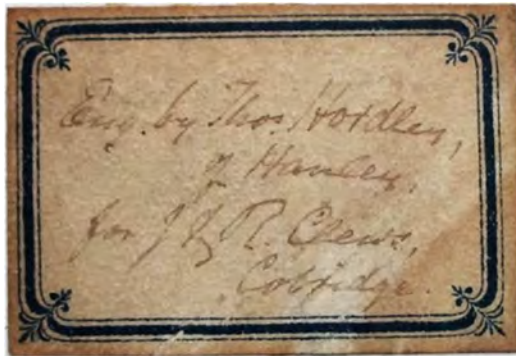 Eng. by Thos. Hordley,
of Hanley,
for J & R. Clews,
Cobridge.